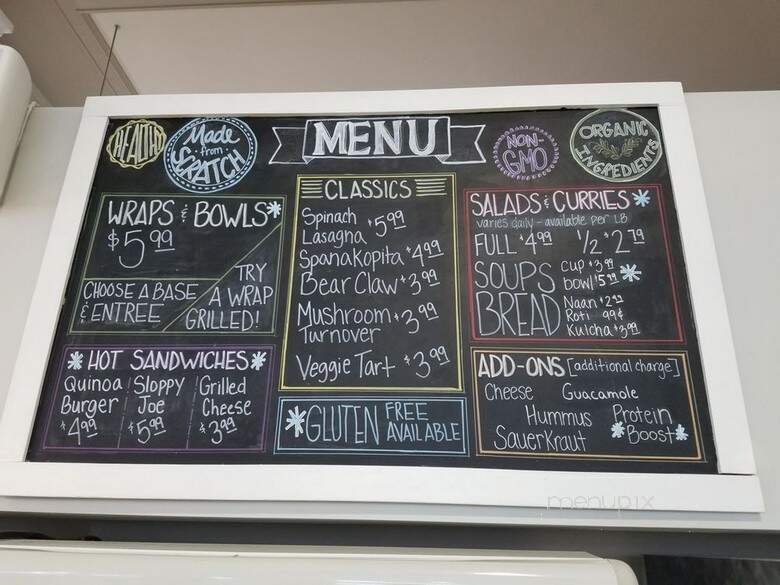 HEALTHY
Made
from
SCRATCH
MENU
NON-
GMO
ORGANIC
INGREDIENTS
WRAPS & BOWLS*
$5.99
CHOOSE A BASE
& ENTREE
TRY
A WRAP
GRILLED!
* HOT SANDWICHES *
Quinoa
Burger
$4.99
Sloppy
Joe
$5.99
Grilled
Cheese
$3.99
CLASSICS
Spinach
Lasagna $5.99
Spanakopita $4.99
Bear Claw $3.99
Mushroom
Turnover $3.99
Veggie Tart $3.99
*GLUTEN FREE
AVAILABLE
SALADS & CURRIES *
varies daily - available per LB
FULL $4.99 1/2 $2.79
SOUPS cup $3.99
bowl $5.19 *
BREAD
Naan $2.99
Roti 99¢
Kulcha $3.99
ADD-ONS [additional charge]
Cheese Guacamole
Hummus Protein
Sauerkraut *Boost*
menupix